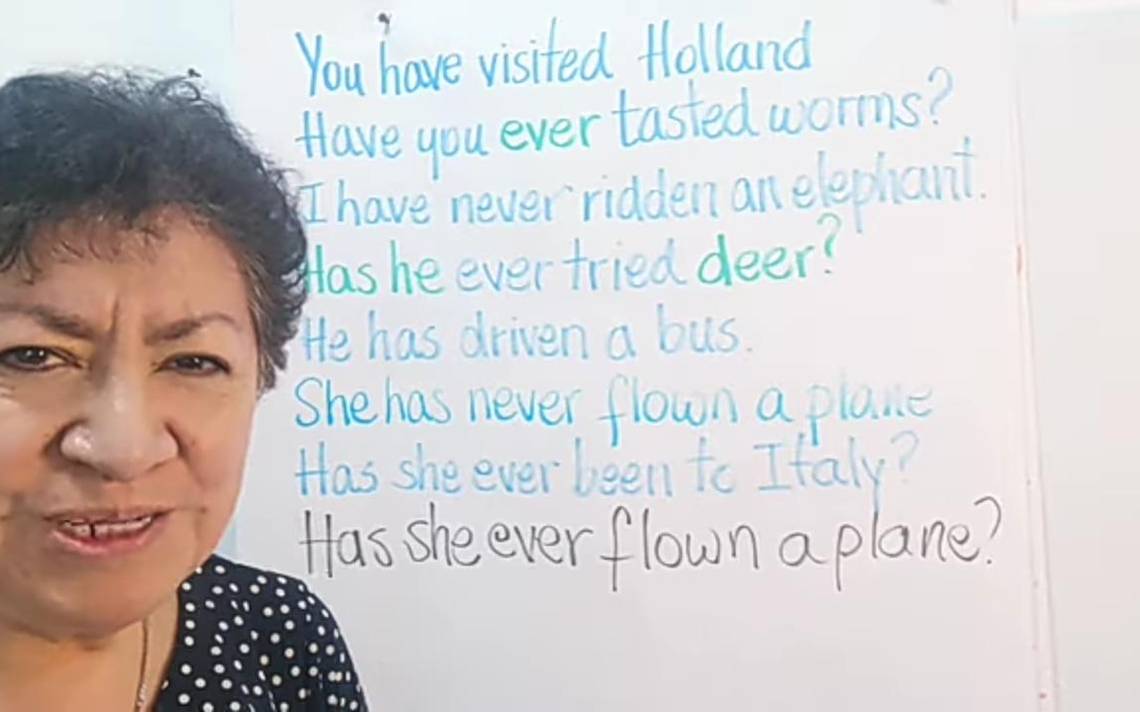 You have visited Holland
Have you ever tasted worms?
I have never ridden an elephant.
Has he ever tried deer?
He has driven a bus.
She has never flown a plane
Has she ever been to Italy?
Has she ever flown a plane?